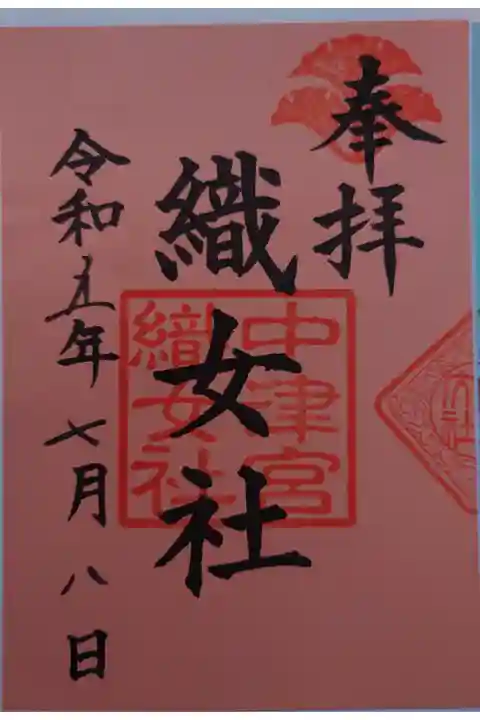 奉拝
織女社
中津宮
織女社
令和五年七月八日